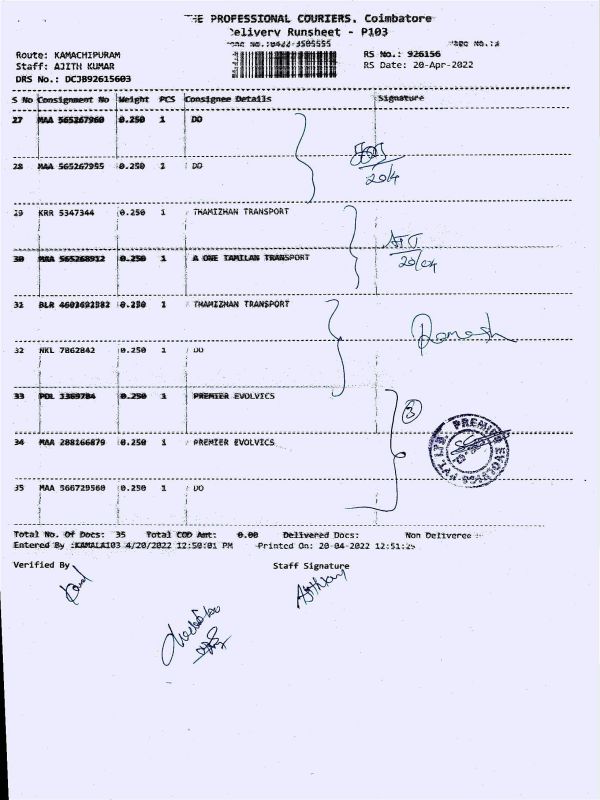 THE PROFESSIONAL COURIERS. Coimbatore
Delivery Runsheet - P103
Route: KAMACHIPURAM
RS No.: 926156
Staff: AJITH KUMAR
RS Date: 20-Apr-2022
DRS No.: DCJB92615603
S No Consignment No Weight PCS Consignee Details Signature
27 MAA 565267960 0.250 1 DO
28 MAA 565267955 0.250 1 DO
20/4
29 KRR 5347344 0.250 1 THAMIZHAN TRANSPORT
30 MAA 565268912 0.250 1 A ONE TAMILAN TRANSPORT
20/04
31 BLR 4601692582 0.250 1 THAMIZHAN TRANSPORT
Ramesh
32 NKL 7862842 0.250 1 DO
33 POL 1369784 0.250 1 PREMIER EVOLVICS
3
34 MAA 288166879 0.250 1 PREMIER EVOLVICS
PREMIER EVOLVICS PVT LTD
35 MAA 566729560 0.250 1 DO
Total No. Of Docs: 35 Total COD Amt: 0.00 Delivered Docs: Non Delivered
Entered By :KAMALA103 4/20/2022 12:50:01 PM Printed On: 20-04-2022 12:51:25
Verified By Staff Signature